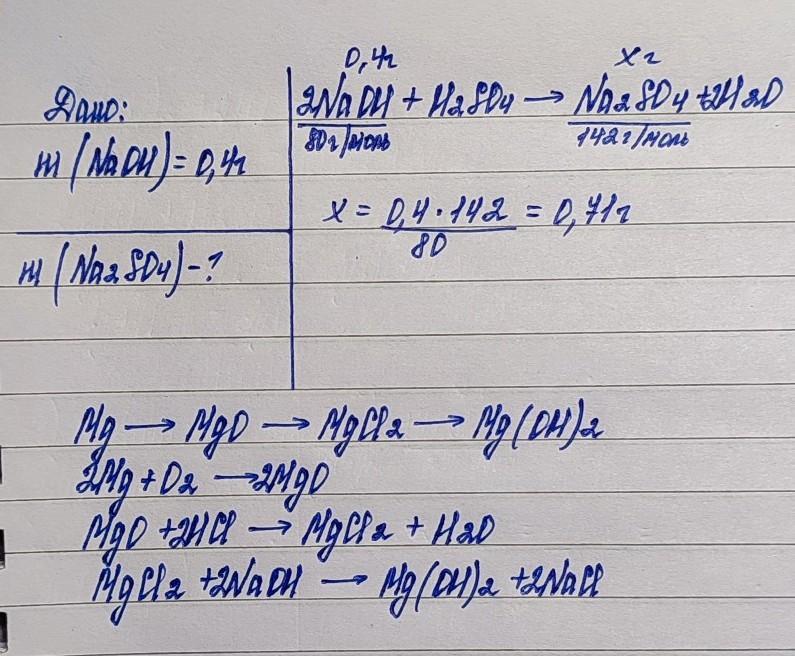 Дано:
m (NaOH) = 0,4г
m (Na2SO4) - ?
0,4г xг
2NaOH + H2SO4 → Na2SO4 + 2H2O
80г/моль 142г/моль
x = 0,4 · 142 = 0,71г
80
Mg → MgO → MgCl2 → Mg(OH)2
2Mg + O2 → 2MgO
MgO + 2HCl → MgCl2 + H2O
MgCl2 + 2NaOH → Mg(OH)2 + 2NaCl